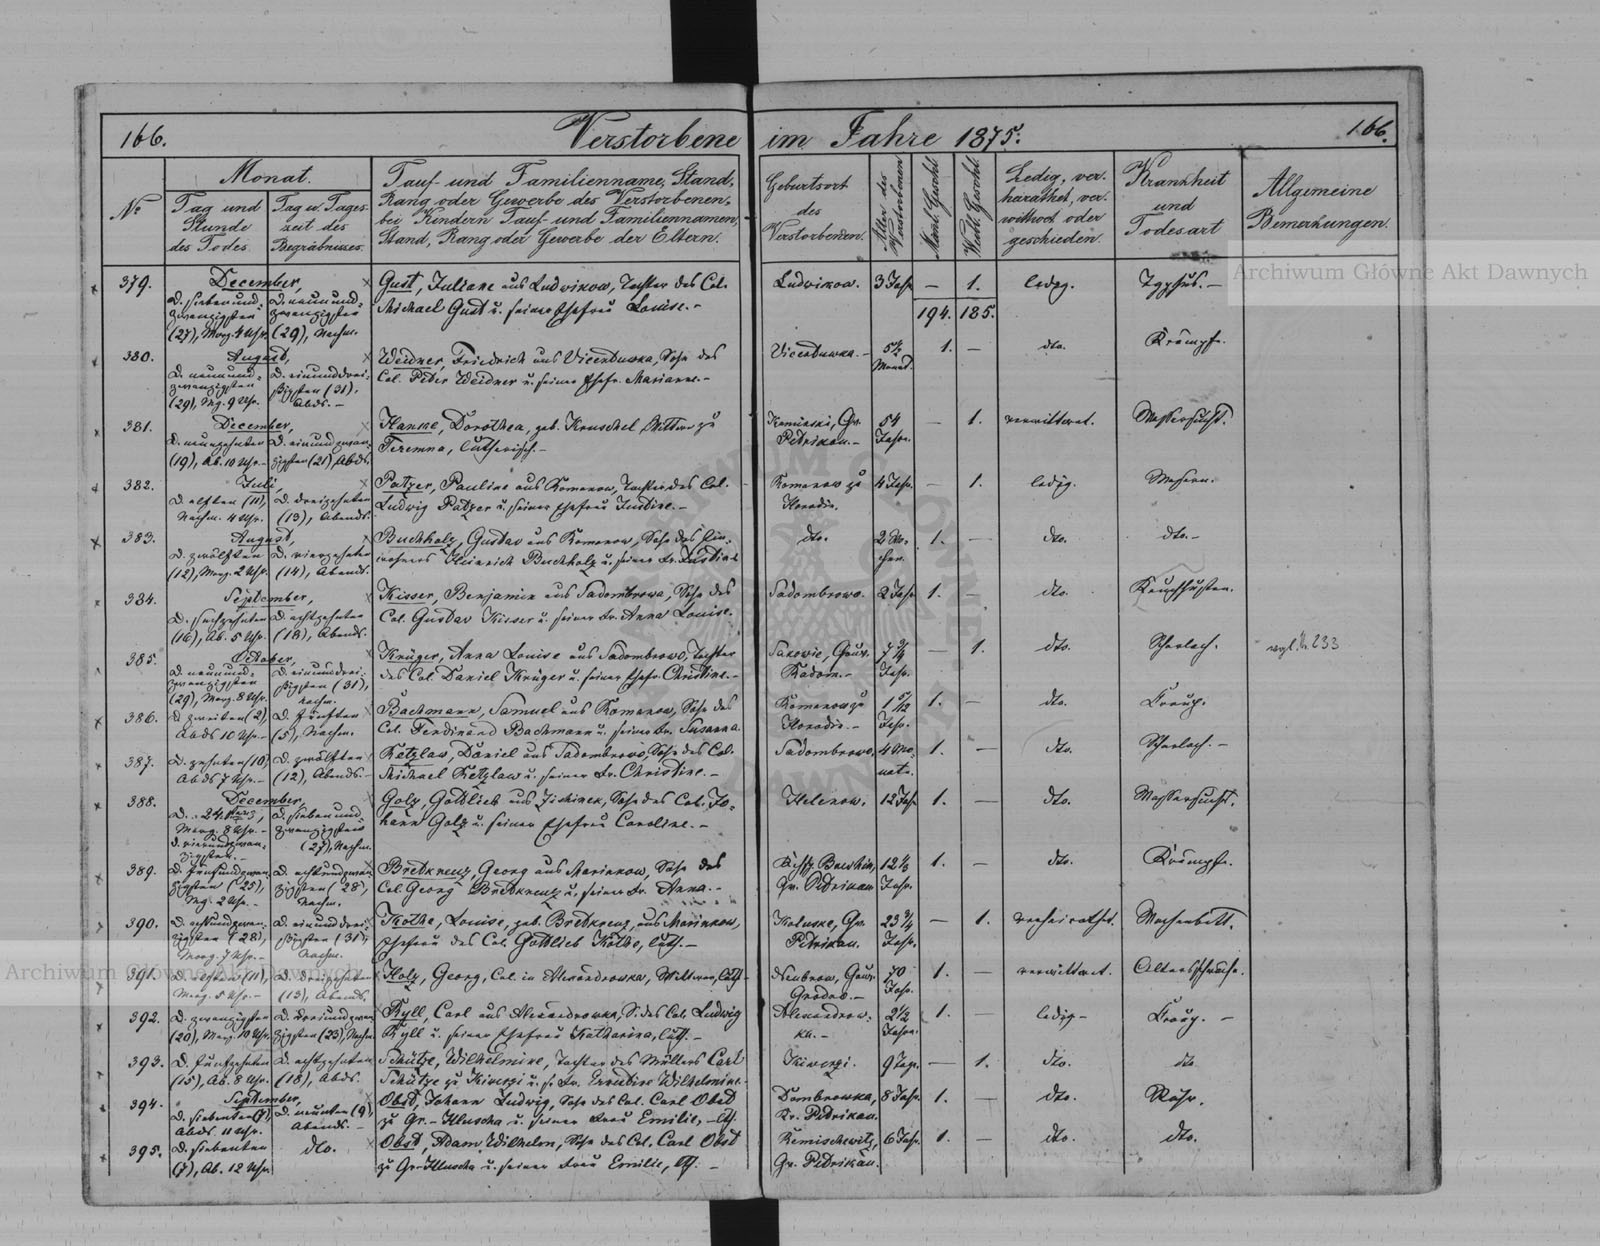 166.
Verstorbene im Jahre 1875.
166.
No
Monat.
Tag und Stunde des Todes.
Tag u. Tageszeit des Begräbnisses.
Tauf- und Familienname, Stand,
Rang oder Gewerbe des Verstorbenen,
bei Kindern Tauf- und Familiennamen,
Stand, Rang oder Gewerbe der Eltern.
Geburtsort
des
Verstorbenen.
Alter des Verstorbenen
Männl. Geschl.
Weibl. Geschl.
Ledig, ver-
heirathet, ver-
wittwet oder
geschieden.
Krankheit
und
Todesart
Allgemeine
Bemerkungen.
379.
December,
D. sieben und- D. neun und-
zwanzigsten zwanzigsten
(27), Morg. 4 Uhr. (29), Nachm.
Gust, Juliane aus Ludwikow, Tochter des Col.
Michael Gust u. seiner Ehefrau Louise.-
Ludwikow. 3 Jahr — 1. ledig. Typhus.-
194. 185.
380.
August,
D. neun und- D. ein und drei-
zwanzigsten ßigsten (31),
(29), Mg. 9 Uhr. Abds.-
Weidner, Friedrich aus Vicentuwka, Sohn des
Col. Peter Weidner u. seiner Ehefr. Marianne.-
Vicentuwka.- 5½ Monat. 1. — dto. Krämpfe.
381.
December,
D. neunzehnten D. ein und zwan-
(19), Ab. 10 Uhr.- zigsten (21), Abds.
Hanke, Dorothea, geb. Kruschel, Wittwe zu
Teremna, lutherisch.-
Kaminski, Gv.
Petrikau.- 54 Jahr. — 1. verwittwet. Wassersucht.
382.
Juli,
D. elften (11), D. dreizehnten
Nachm. 4 Uhr. (13), Abends.
Patzer, Pauline aus Romanow, Tochter des Col.
Ludwig Patzer u. seiner Ehefrau Justine.-
Romanow zu
Horodio. 4 Jahr. — 1. ledig. Masern.
383.
August,
D. zwölften D. vierzehnten
(12), Morg. 2 Uhr. (14), Abends.
Buchholz, Gustav aus Romanow, Sohn des Ein-
wohners Heinrich Buchholz u. seiner Fr. Justine
dto. 1. — dto. dto.-
384.
September,
D. sechzehnten D. achtzehnten
(16), Ab. 5 Uhr. (18), Abends.
Kisser, Benjamin aus Sadombrowo, Sohn des
Col. Gustav Kisser u. seiner Fr. Anna Louise.
Sadombrowo. 2 Jahr 1. — dto. Keuchhusten.
385.
October,
D. neun und- D. ein und drei-
zwanzigsten ßigsten (31),
(29), Morg. 8 Uhr. Nachm.
Krüger, Anna Louise aus Sadombrowo, Tochter
des Col. Daniel Krüger u. seiner Ehefr. Christine.-
Sakowie, Gouv.
Radom.- 7¾ Jahr. — 1. dto. Scharlach. vgl. N. 233
386.
D. zweiten (2) D. fünften
Abds 10 Uhr.- (5), Nachm.
Bachmann, Samuel aus Romanow, Sohn des
Col. Ferdinand Bachmann u. seiner Fr. Susanna
Romanow zu
Horodio.- 1 5/12 Jahr. 1. — dto. Croup.
387.
D. zehnten (10) D. zwölften
Abds 7 Uhr.- (12), Abends.-
Ketzlaw, Daniel aus Sadombrowo, Sohn des Col.
Michael Ketzlaw u. seiner Fr. Christine.-
Sadombrowo, 4 Mo-
nate. 1. — dto. Scharlach.-
388.
December,
D. 24.sten, D. sieben und-
Morg. 8 Uhr.- zwanzigsten
d. vierundzwan- (27), Nachm.
zigsten.-
Golz, Gottlieb aus, Sohn des Col. Jo-
hann Golz u. seiner Ehefrau Caroline.-
Helenow. 12 Jahr 1. — dto. Wassersucht.
389.
D. fünfundzwan- D. achtundzwan-
zigsten (25), zigsten (28),
Mg. 2 Uhr.- Nachm.
Bredkreuz, Georg aus Marinkow, Sohn des
Col. Georg Bredkreuz u. seiner Fr. Anna.-
Gv. Petrikau 12½ Jahr. 1. — dto. Krämpfe.
390.
D. achtundzwan- D. ein und drei-
zigsten (28), ßigsten (31),
Morg. 7 Uhr.- Nachm.
Kothe, Louise, geb. Bredkreuz, aus Marinkow,
Ehefrau des Col. Gottlieb Kothe, luth.-
Koluske, Gv.
Petrikau. 23¾ Jahr. — 1. verheirathet. Wochenbett.
391.
D. elften (11), D. dreizehnten
Morg. 5 Uhr.- (13), Abends.
Holz, Georg, Col. in Alexandrowka, Wittwer, luth.-
Neubrow, Gouv.
Grodno.- 70 Jahr. 1. — verwittwet. Altersschwäche.
392.
D. zwanzigsten D. dreiundzwan-
(20), Morg. 10 Uhr. zigsten (23), Nachm.
Kyll, Carl aus Alexandrowka, S. des Col. Ludwig
Kyll u. seiner Ehefrau Katharina, luth.-
Alexandrow-
ka.- 2½ Jahre. 1. — ledig.- Croup.-
393.
D. fünfzehnten D. achtzehnten
(15), Ab. 8 Uhr. (18), Abds.
Schütze, Wilhelmine, Tochter des Müllers Carl
Schütze zu Kiwerzi u. s. Fr. Ernestine Wilhelmine.-
Kiwerzi. 9 Tage. — 1. dto. dto
394.
September,
D. siebenten (7), D. neunten (9),
Abds. 11 Uhr. Abends.-
Obst, Johann Ludwig, Sohn des Col. Carl Obst
zu Gr.-Hluscha u. seiner Frau Emilie,-
Dombrowka,
Kr. Petrikau. 8 Jahr. 1. — dto. Ruhr.
395.
D. siebenten dto.
(7), Ab. 12 Uhr.
Obst, Adam Wilhelm, Sohn des Col. Carl Obst
zu Gr.-Hluscha u. seiner Frau Emilie,-
Remischewitz,
Gv. Petrikau. 6 Jahr. 1. — dto. dto.
Archiwum Główne Akt Dawnych
Archiwum Główne Akt Dawnych